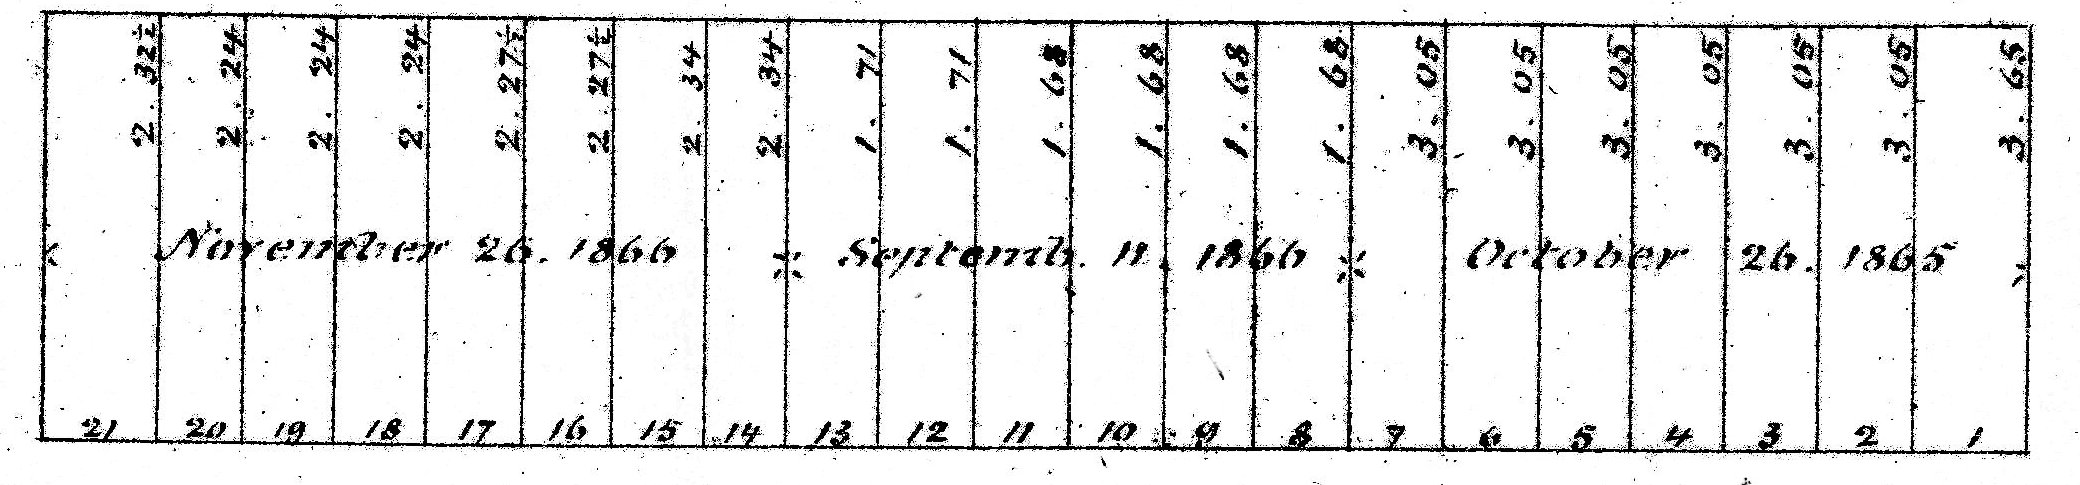 2. 32½ 2. 24 2. 24 2. 24 2. 27½ 2. 27½ 2. 34 2. 34 1. 71 1. 71 1. 68 1. 68 1. 68 1. 68 3. 05 3. 05 3. 05 3. 05 3. 05 3. 05 3. 65
November 26. 1866 Septemb. 11. 1866 October 26. 1865
21 20 19 18 17 16 15 14 13 12 11 10 9 8 7 6 5 4 3 2 1